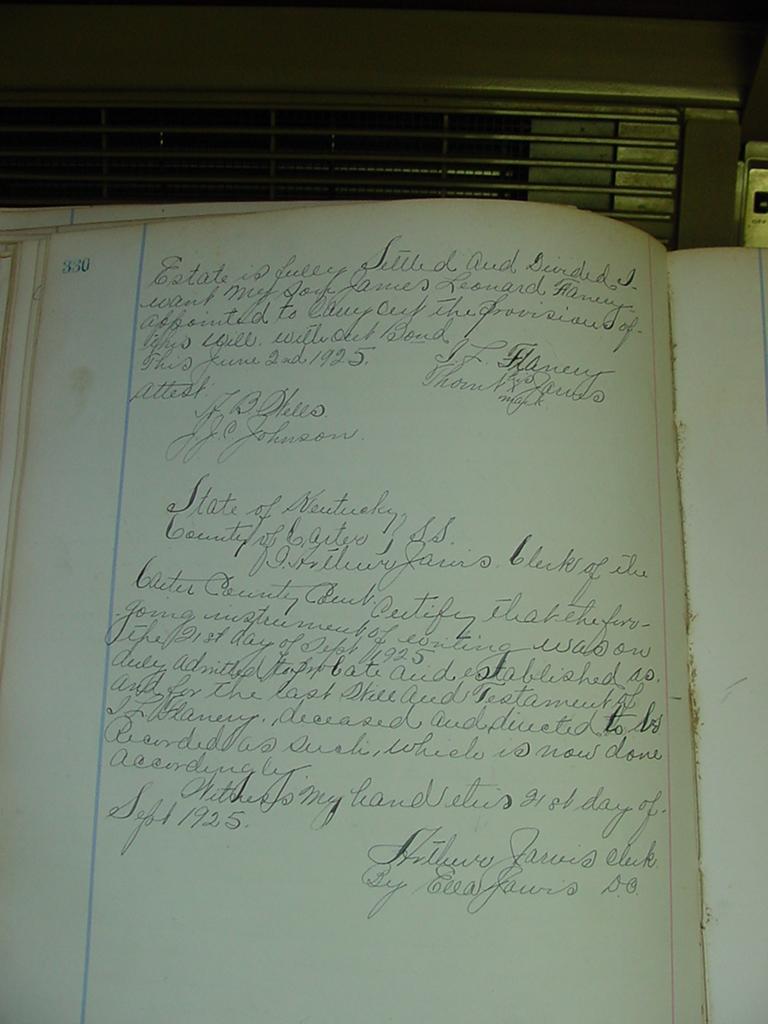 330
Estate is fully Settled and Divided. I
want my son James Leonard Flanery
appointed to Carry out the provisions of
this will. without Bond
This June 2nd 1925.
T. L. Flanery
his
Thornt X James
mark
attest:
W B Wells
J.C. Johnson.
State of Kentucky,
County of Carter, SS.
I, Arthur Jarvis. Clerk of the
Carter County Court. Certify that the fore-
going instrument of writing was on
the 21st day of Sept 1925
duly admitted to probate and established as.
and for the last Will and Testament of
T L Flanery, deceased and directed to be
Recorded as such, which is now done
accordingly
Witness my hand this 21st day of
Sept 1925.
Arthur Jarvis Clerk
By Ella Jarvis D.C.